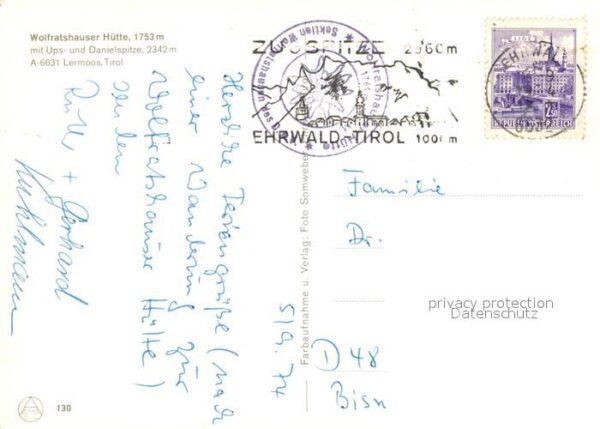 Wolfratshauser Hütte, 1753 m
mit Ups- und Danielspitze, 2342 m
A-6631 Lermoos, Tirol
ZUGSPITZE 2960m
EHRWALD-TIROL 1000m
Wolfratshauser Hütte
Sektion Wolfratshausen des
LINZ
2.50
REPUBLIK ÖSTERREICH
EHRWALD
Herzliche Feriengrüße (nach
einer Wanderung zur
Wolfratshauser Hütte)
von den
Ruth + Gerhard
Kuhlmann
5/9.74
Farbaufnahme u. Verlag: Foto Somweber
Familie
Dr.
privacy protection
Datenschutz
D-48
130